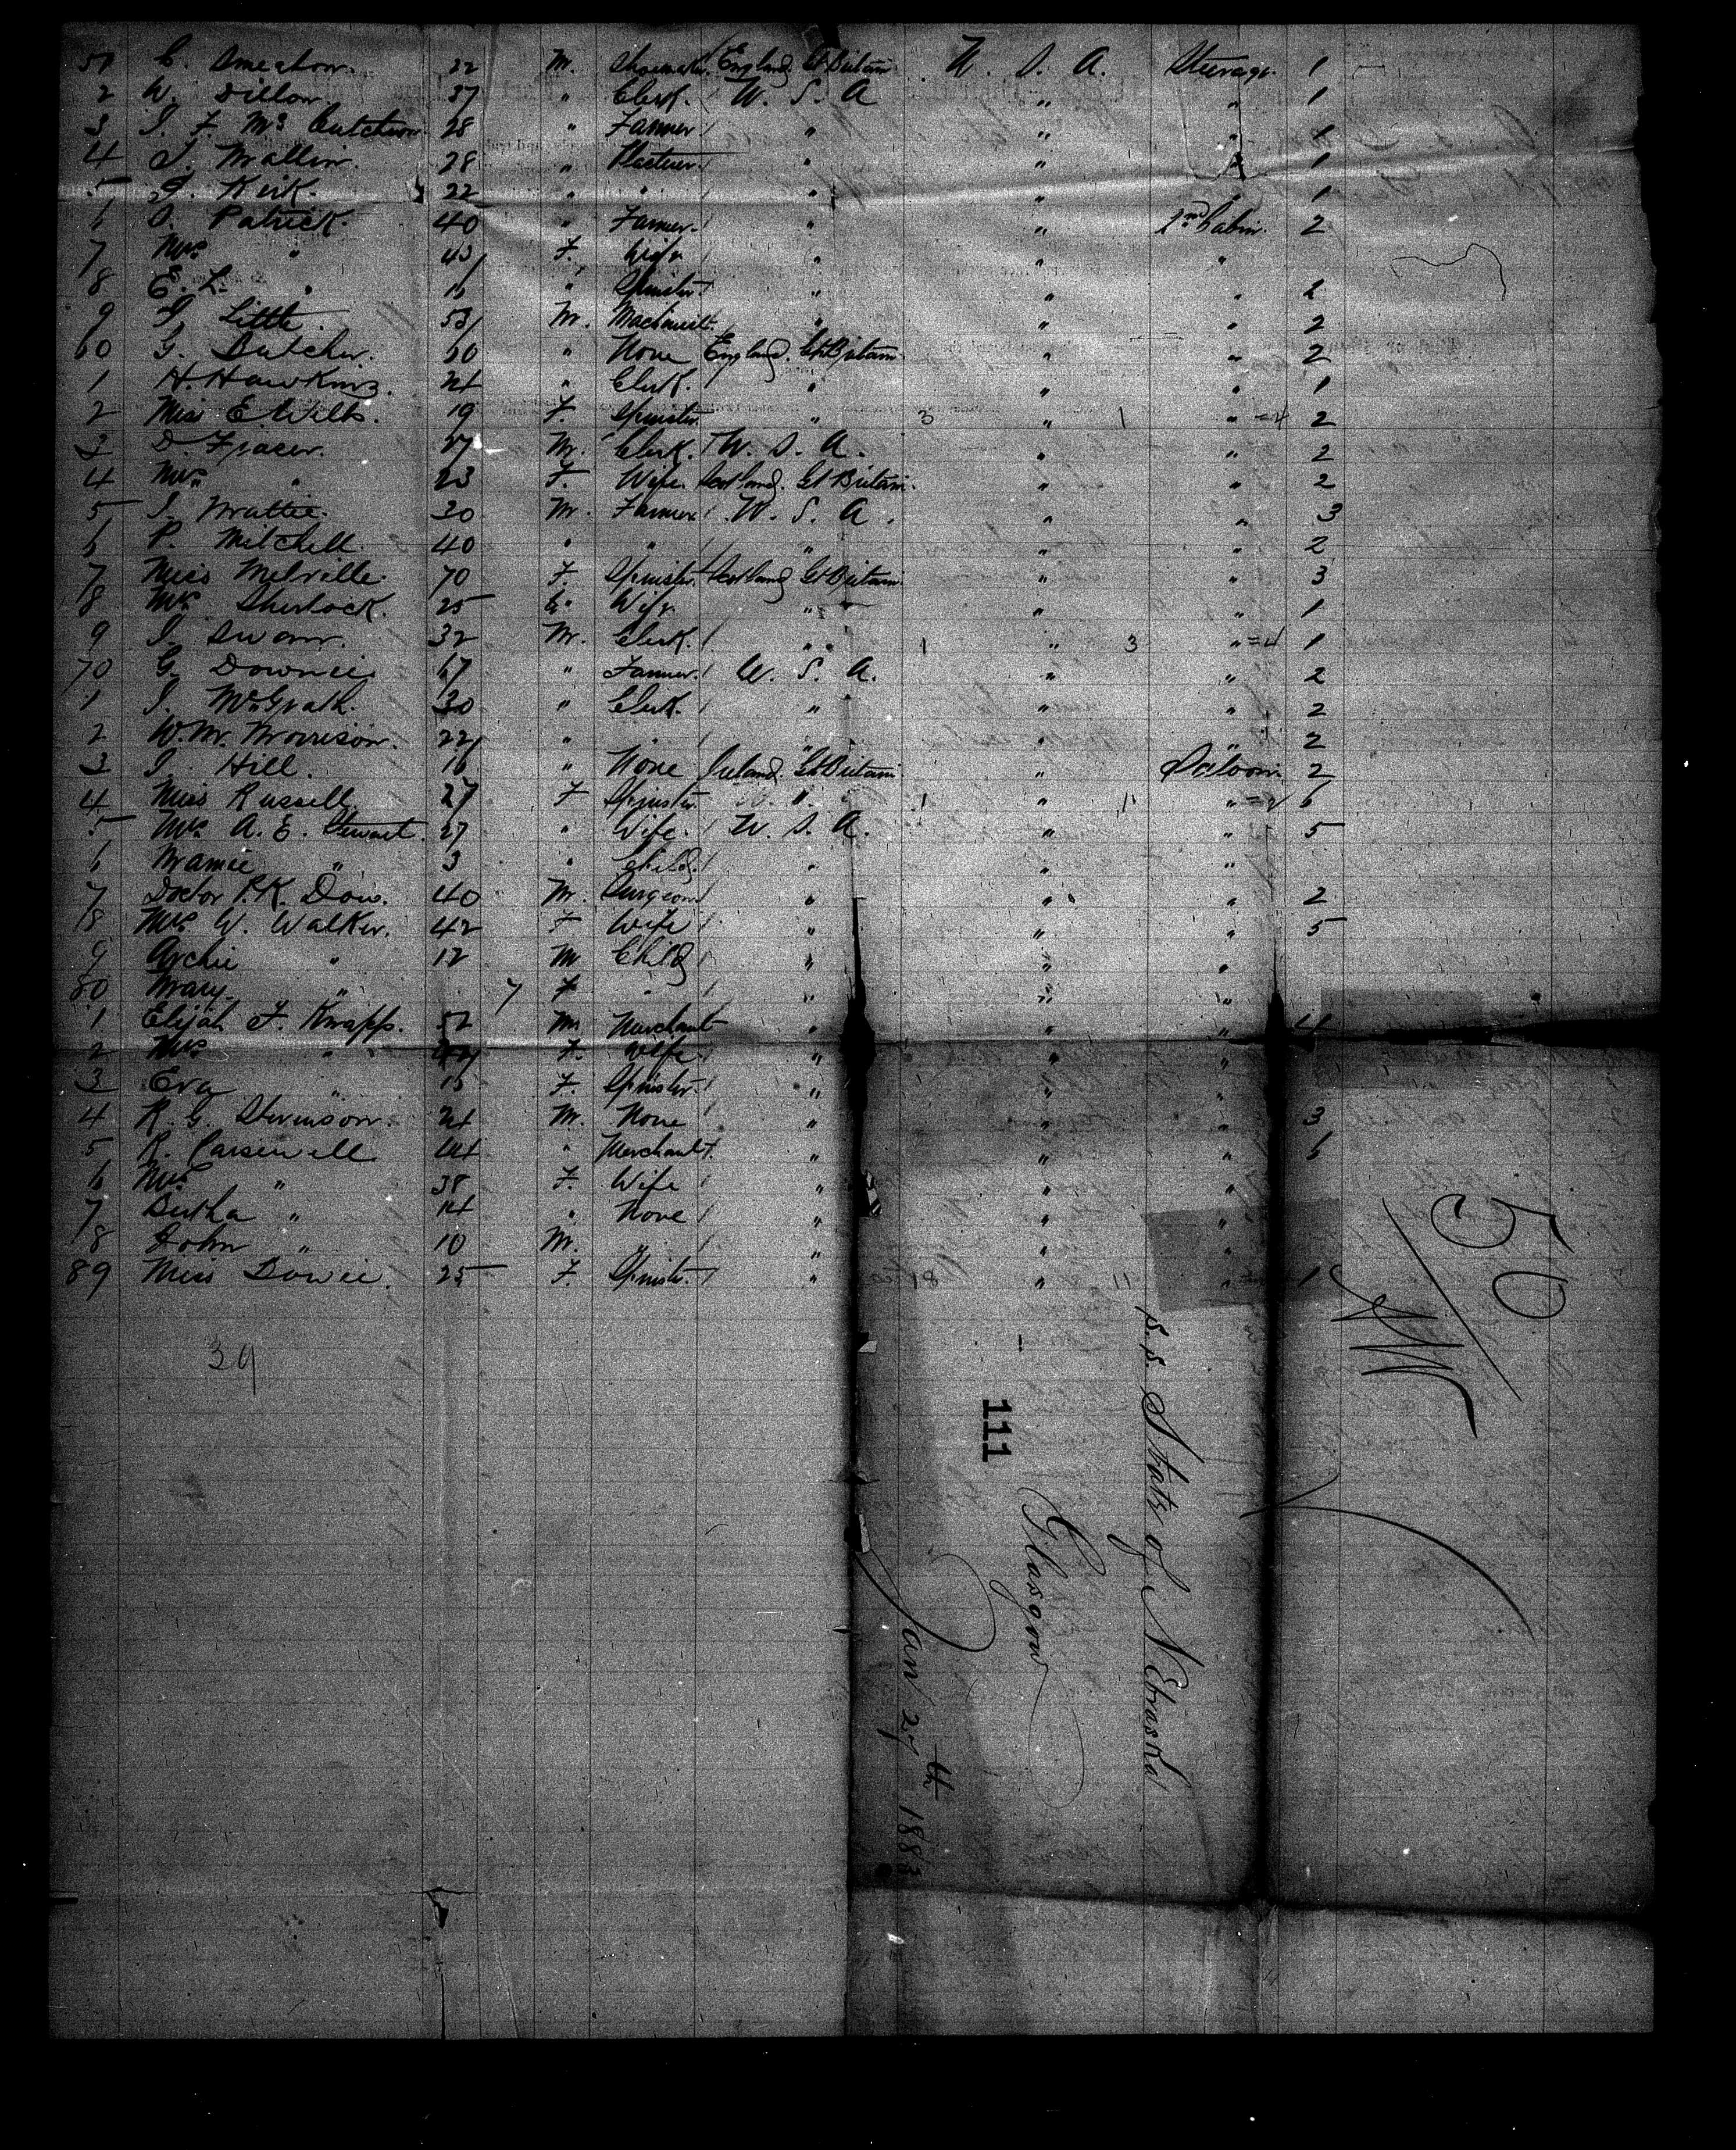 51 C. Smeaton. 32 M. Shoemaker. England Gt Britain U. S. A. Steerage. 1
2 W. Dillon 37 " Clerk. U. S. A " " 1
3 J. F. Mc Cutcheon. 28 " Farmer " " "
4 J. Mallin. 28 " Plasterer " " 1
5 J. Kirk. 22 " " " " " 1
6 J. Patrick. 40 " Farmer. " " 2nd Cabin. 2
7 Mrs " 43 F. Wife " " "
8 E. L. " 16 " Spinster " " " 2
9 J. Little. 53 M. Machinist. " " " 2
60 G. Butcher. 60 " None England. Gt Britain. " " 2
1 H. Hawkins. 24 " Clerk. " " " 1
2 Miss E. Wilks. 19 F. Spinster. " 3 " 1 " =4 2
3 D. Fraser. 27 M. Clerk. U. S. A. " " 2
4 Mrs " 23 F. Wife. Scotland. Gt Britain. " " 2
5 J. Mattie. 30 M. Farmer U. S. A. " " 3
6 P. Mitchell. 40 " " " " " 2
7 Miss Melville 70 F. Spinster. Scotland Gt Britain. " " 3
8 Mrs Sherlock. 25 " Wife " " " 1
9 J. Swan. 32 M. Clerk. " 1 " 3 " =4 1
70 G. Downie 67 " Farmer. U. S. A. " " 2
1 J. McGrath. 30 " Clerk. " " " 2
2 W. M. Morrison. 22 " " " " " 2
3 J. Hill. 16 " None Ireland. Gt Britain " Saloon 2
4 Miss Russell. 27 F Spinster. " " 1 " 1 " =2 6
5 Mrs A. E. Stewart. 27 " Wife. U. S. A. " " 5
6 Mamie " 3 " Child. " " "
7 Doctor P. K. Dow. 40 M. Surgeon " " " 2
78 Mrs W. Walker. 42 F Wife " " " 5
9 Archie " 12 M Child " " "
80 Mary " 7 F " " " "
1 Elijah F. Knapp. 52 M. Merchant " " " 4
2 Mrs " F. Wife " " "
3 Eva " 15 F. Spinster. " " "
4 R. G. Stevenson. 24 M. None " " " 3
5 R. 44 " Merchant. " " " 6
6 Mrs " 38 F. Wife " " "
7 Bertha " 14 " None " " "
8 John " 10 M. " " " "
89 Miss Dowie. 25 F. Spinster. " " 11 " 1
39
50
S.S. State of Nebraska
Glasgow
111
Jan 27th 1883